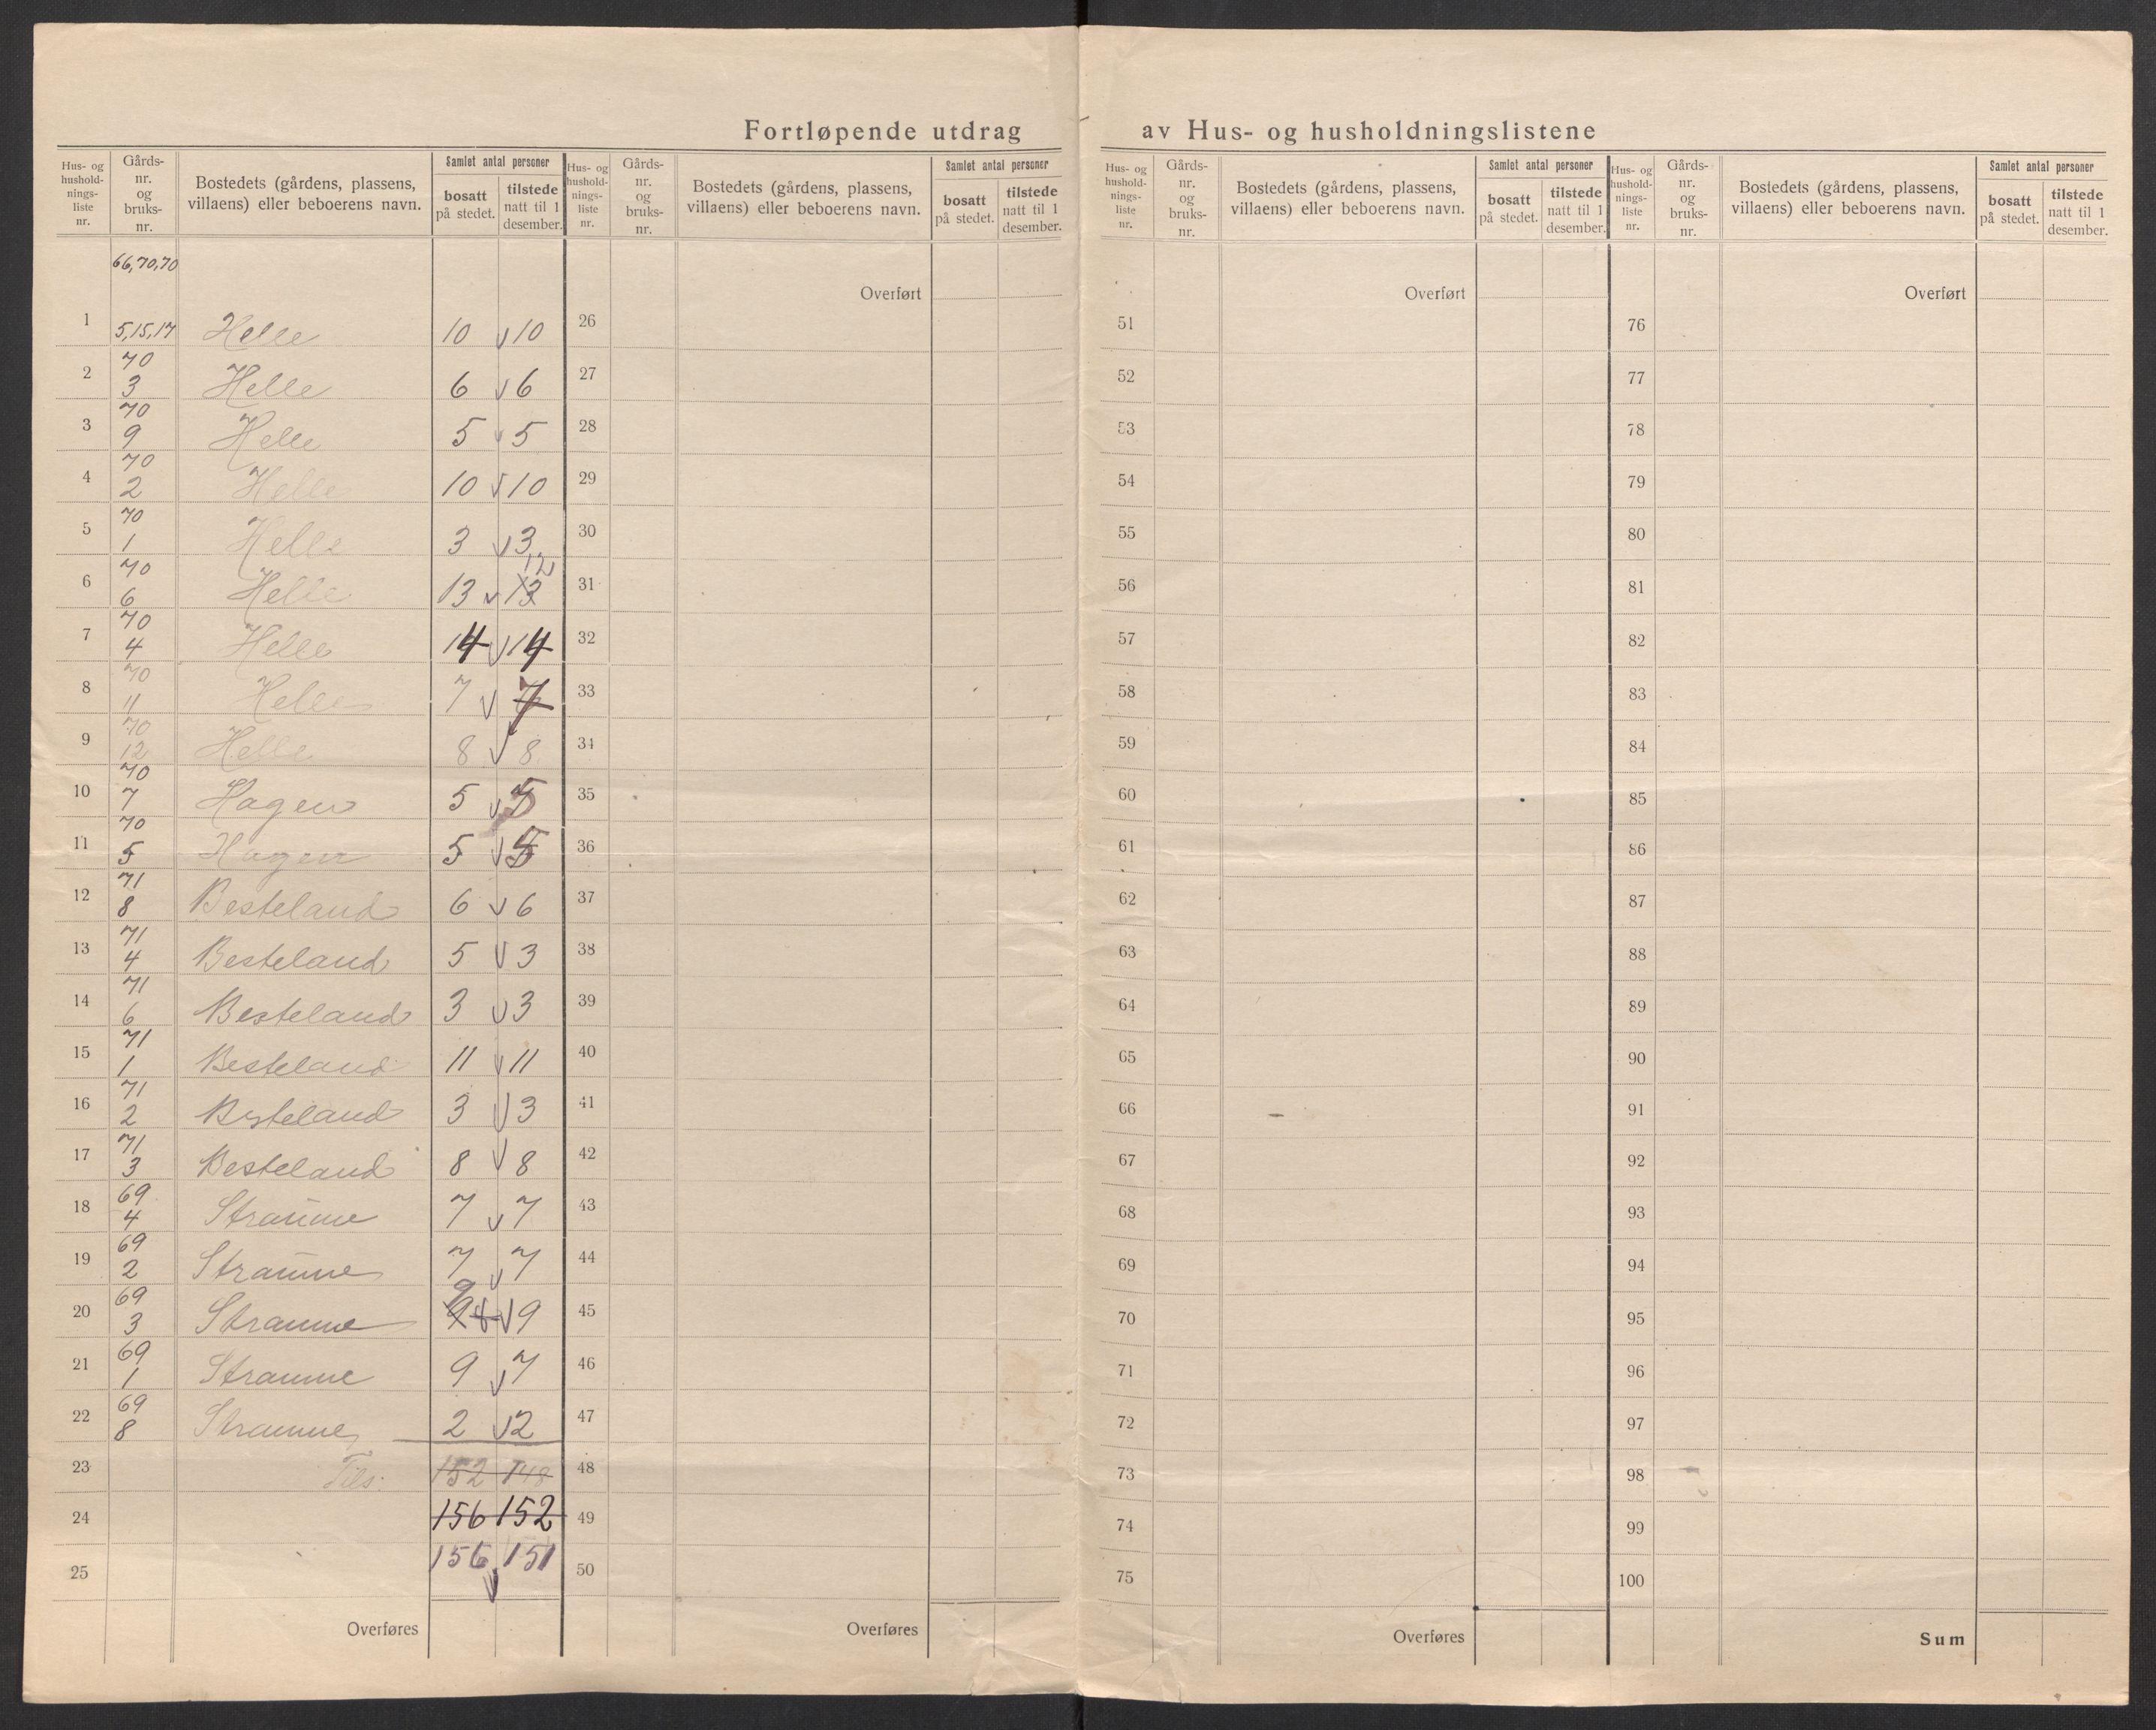 Fortløpende utdrag av Hus- og husholdningslistene
Hus- og husholdnings-liste nr. Gårds-nr. og bruks-nr. Bostedets (gårdens, plassens, villaens) eller beboerens navn. Samlet antal personer bosatt på stedet. tilstede natt til 1 desember.
66,70,70
1 5,15,17 Helle 10 v 10
2 70 3 Helle 6 v 6
3 70 9 Helle 5 v 5
4 70 2 Helle 10 v 10
5 70 1 Helle 3 v 3
6 70 6 Helle 13 v 13 12
7 70 4 Helle 14 v 14
8 70 11 Helle 7 v 7
9 70 12 Helle 8 v 8
10 70 7 Hagen 5 v 5
11 70 5 Hagen 5 v 5
12 71 8 Besteland 6 v 6
13 71 4 Besteland 5 v 3
14 71 6 Besteland 3 v 3
15 71 1 Besteland 11 v 11
16 71 2 Besteland 3 v 3
17 71 3 Besteland 8 v 8
18 69 4 Straume 7 v 7
19 69 2 Straume 7 v 7
20 69 3 Straume 9 9 8 v 9
21 69 1 Straume 9 v 7
22 69 8 Straume 2 v 2
23 Tils: 152 148
24 156 152
25 156 v 151
Overføres
Hus- og husholdnings-liste nr. Gårds-nr. og bruks-nr. Bostedets (gårdens, plassens, villaens) eller beboerens navn. Samlet antal personer bosatt på stedet. tilstede natt til 1 desember.
Overført
26
27
28
29
30
31
32
33
34
35
36
37
38
39
40
41
42
43
44
45
46
47
48
49
50
Overføres
Hus- og husholdnings-liste nr. Gårds-nr. og bruks-nr. Bostedets (gårdens, plassens, villaens) eller beboerens navn. Samlet antal personer bosatt på stedet. tilstede natt til 1 desember.
Overført
51
52
53
54
55
56
57
58
59
60
61
62
63
64
65
66
67
68
69
70
71
72
73
74
75
Overføres
Hus- og husholdnings-liste nr. Gårds-nr. og bruks-nr. Bostedets (gårdens, plassens, villaens) eller beboerens navn. Samlet antal personer bosatt på stedet. tilstede natt til 1 desember.
Overført
76
77
78
79
80
81
82
83
84
85
86
87
88
89
90
91
92
93
94
95
96
97
98
99
100
Sum